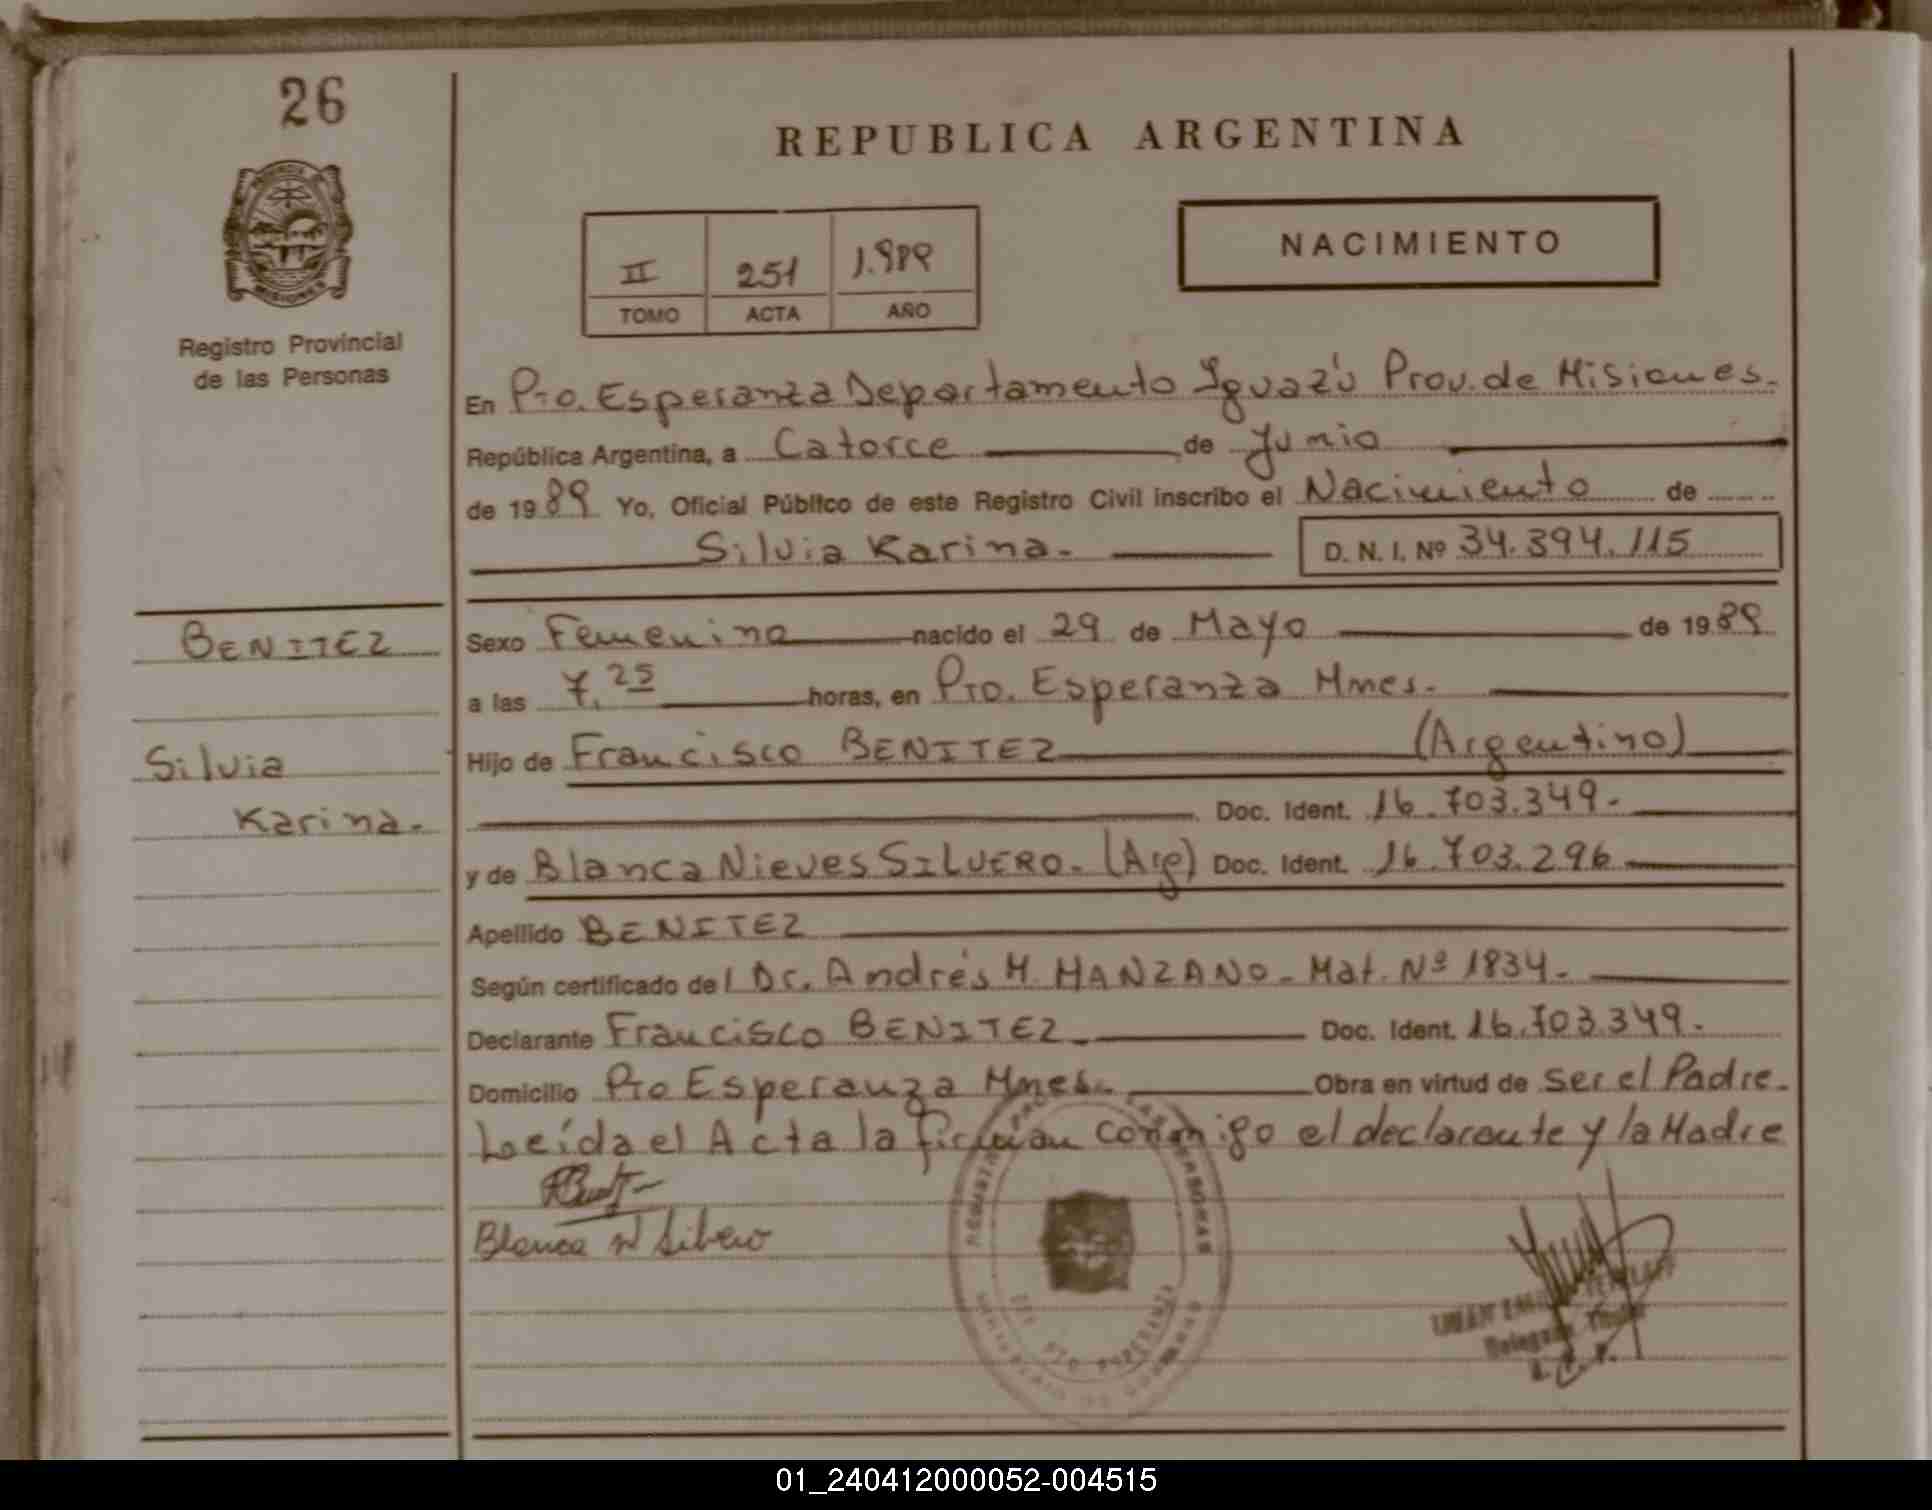 26
REPUBLICA ARGENTINA
MISIONES
Registro Provincial
de las Personas
II 251 1.989
TOMO ACTA AÑO
NACIMIENTO
En Pto. Esperanza Departamento Iguazú Prov. de Misiones.
República Argentina, a Catorce de Junio
de 1989 Yo, Oficial Público de este Registro Civil inscribo el Nacimiento de
Silvia Karina.
D. N. I. Nº 34.394.115
BENITEZ
Silvia
Karina.
Sexo Femenino nacido el 29 de Mayo de 1989
a las 7,25 horas, en Pto. Esperanza Mnes.
Hijo de Francisco BENITEZ (Argentino)
Doc. Ident. 16.703.349.
y de Blanca Nieves SILVERO. (Arg) Doc. Ident. 16.703.296
Apellido BENITEZ
Según certificado del Dr. Andrés M. MANZANO - Mat. Nº 1834.
Declarante Francisco BENITEZ. Doc. Ident. 16.703.349.
Domicilio Pto Esperanza Mnes. Obra en virtud de ser el Padre.
Leída el Acta la firman conmigo el declarante y la Madre
Blanca N Silvero
PTO ESPERANZA
01_240412000052-004515